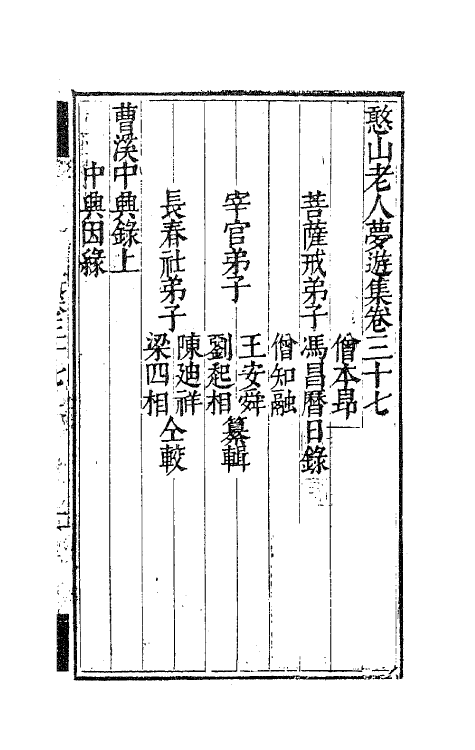 憨山老人夢遊集卷三十七
僧本昂
菩薩戒弟子馮昌曆日錄
僧知融
王安舜
宰官弟子 纂輯
劉起相
陳迪祥
長春社弟子 仝較
梁四相
曹溪中興錄上
中興因緣